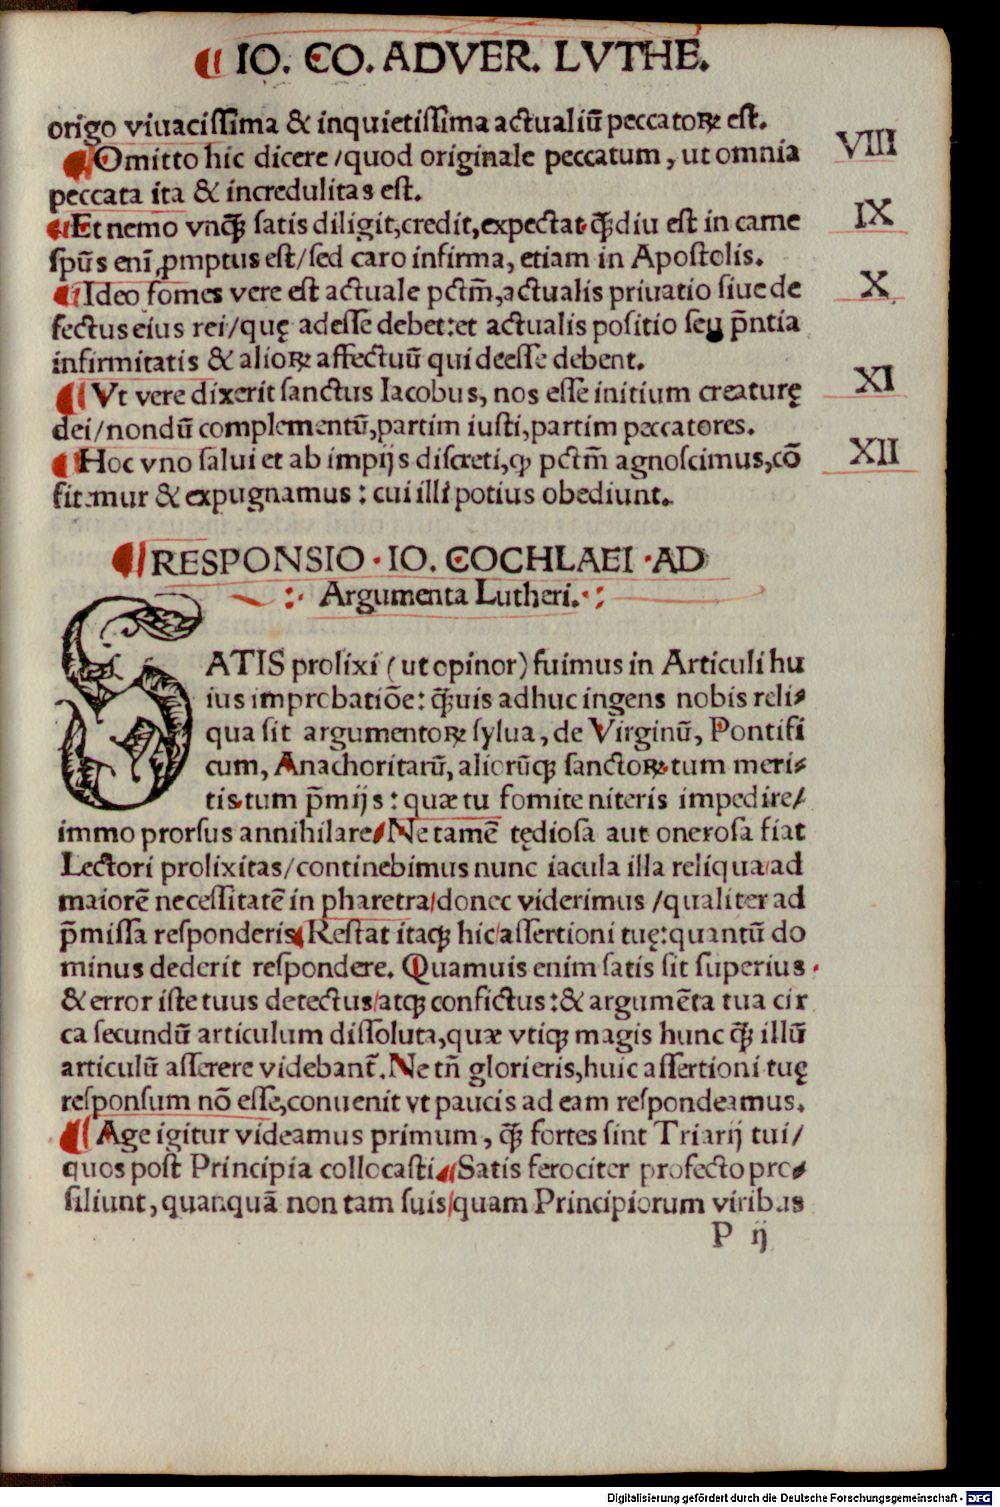 IO. CO. ADVER. LVTHE.
origo viuacissima & inquietissima actualiū peccatoꝝ est.
Omitto hic dicere/quod originale peccatum, ut omnia
VIII
peccata ita & incredulitas est.
Et nemo vnꝙ̃ satis diligit, credit, expectat ꝙ̃diu est in carne
IX
spūs enī ꝓmptus est/sed caro infirma, etiam in Apostolis.
Ideo fomes vere est actuale pctm̄, actualis priuatio siue de
X
fectus eius rei/quę adesse debet: et actualis positio seu p̄ntia
infirmitatis & alioꝝ affectuū qui deesse debent.
Vt vere dixerit sanctus Iacobus, nos esse initium creaturę
XI
dei/nondū complementū, partim iusti, partim peccatores.
Hoc vno salui et ab impijs discreti, ꝙ pctm̄ agnoscimus, cō
XII
fitemur & expugnamus: cui illi potius obediunt.
RESPONSIO · IO. COCHLAEI · AD
Argumenta Lutheri.
SATIS prolixi (ut opinor) fuimus in Articuli hu
ius improbatiōe: ꝙ̃uis adhuc ingens nobis reli-
qua sit argumentoꝝ sylua, de Virginū, Pontifi
cum, Anachoritarū, aliorūqꝫ sanctoꝝ tum meri-
tis tum p̄mijs: quæ tu fomite niteris impedire/
immo prorsus annihilare/Ne tamē tędiosa aut onerosa fiat
Lectori prolixitas/continebimus nunc iacula illa reliqua ad
maiorē necessitatē in pharetra/donec viderimus/qualiter ad
p̄missa responderis. Restat itaqꝫ hic assertioni tuę: quantū do
minus dederit respondere. Quamuis enim satis sit superius
& error iste tuus detectus/atqꝫ confictus: & argumēta tua cir
ca secundū articulum dissoluta, quæ vtiqꝫ magis hunc ꝙ̃ illū
articulū asserere videbant̃. Ne tn̄ glorieris, huic assertioni tuę
responsum nō esse, conuenit vt paucis ad eam respondeamus.
Age igitur videamus primum, ꝙ̃ fortes sint Triarij tui/
quos post Principia collocasti. Satis ferociter profecto pro-
siliunt, quanquā non tam suis/quam Principiorum viribus
P ij
Digitalisierung gefördert durch die Deutsche Forschungsgemeinschaft - DFG